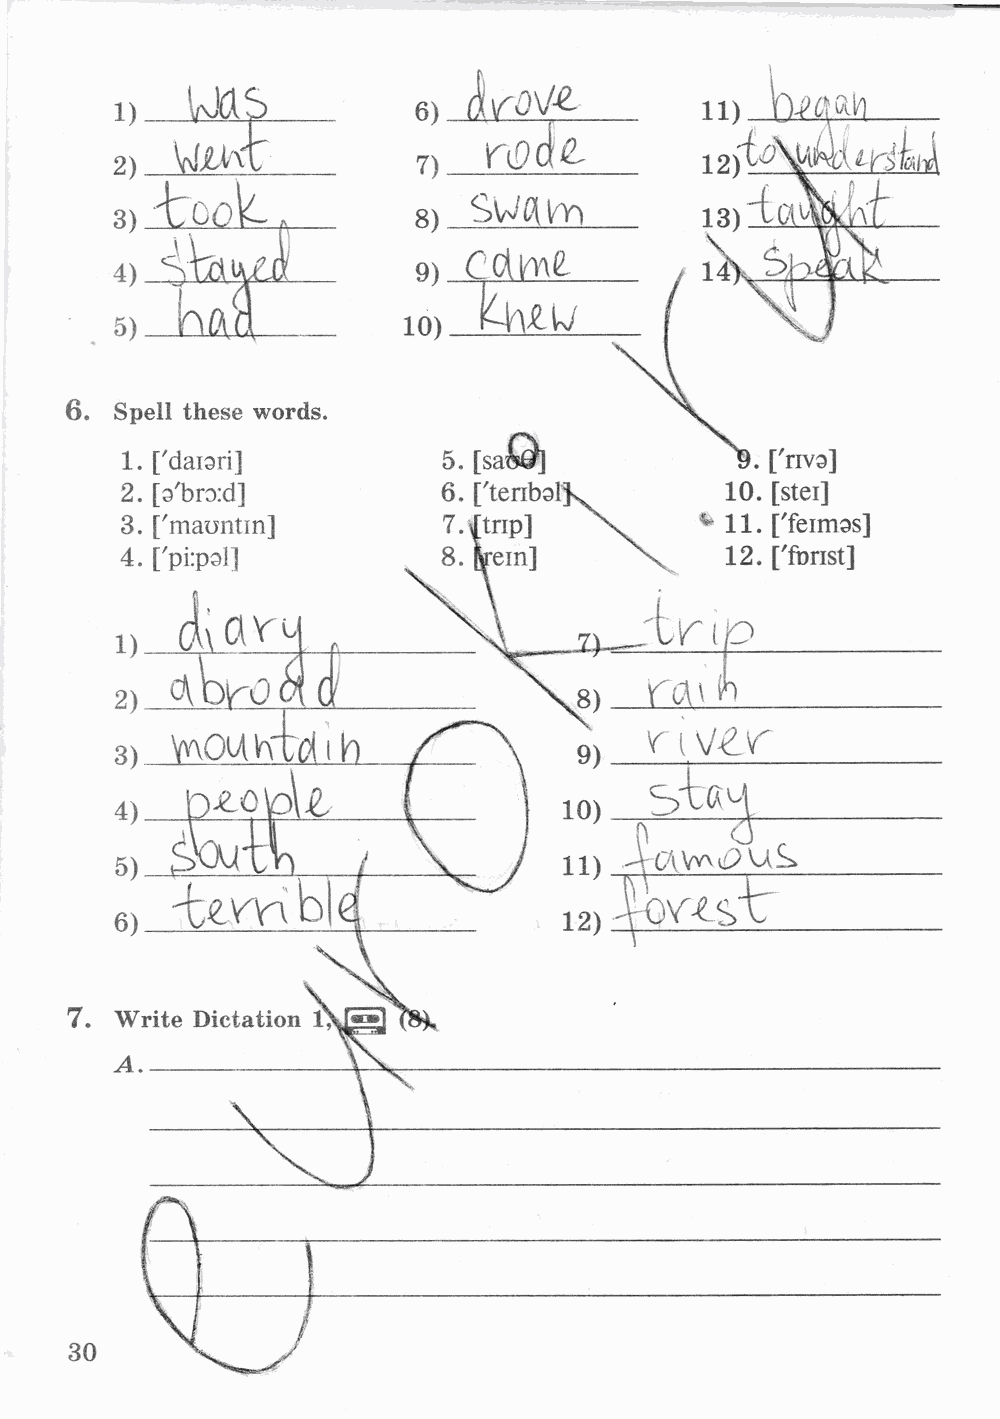 1) was 6) drove 11) began
2) went 7) rode 12) to understand
3) took 8) swam 13) taught
4) stayed 9) came 14) speak
5) had 10) knew
6. Spell these words.
1. [ˈdaɪəri] 5. [saʊθ] 9. [ˈrɪvə]
2. [əˈbrɔ:d] 6. [ˈterɪbəl] 10. [steɪ]
3. [ˈmaʊntɪn] 7. [trɪp] 11. [ˈfeɪməs]
4. [ˈpi:pəl] 8. [reɪn] 12. [ˈfɒrɪst]
1) diary 7) trip
2) abroad 8) rain
3) mountain 9) river
4) people 10) stay
5) south 11) famous
6) terrible 12) forest
7. Write Dictation 1, (8).
A.
30